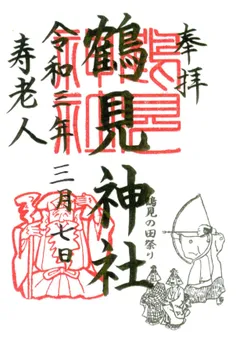 奉拝
鶴見神社
鶴見神社
鶴見の田祭り
令和三年三月七日
寿老人